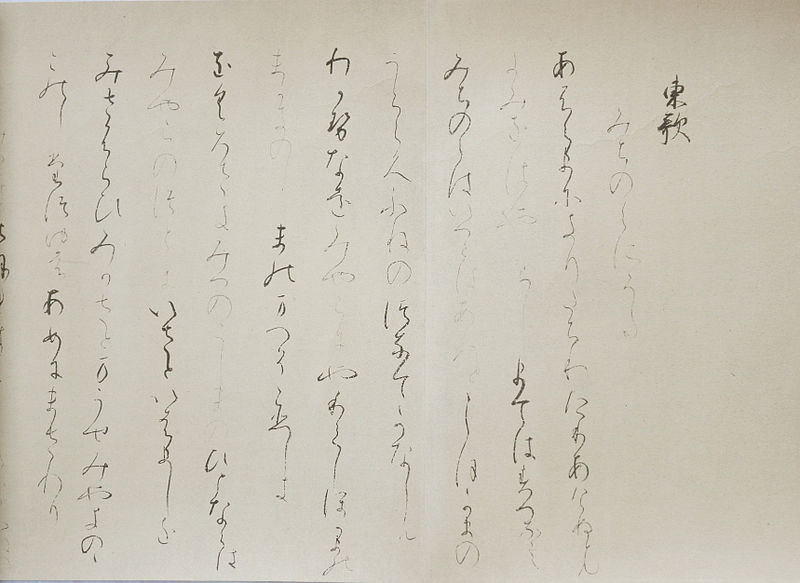 東歌
みちのくにうた
あふくまにきりたちわたりあけぬとも
きみをはやらしまてはすへなし
みちのくはいつくはあれとしほかまの
うらこくふねのつなてかなしも
わかせなをみやこにやりてしほかまの
まかきのしまのまつそこひしき
をくろさきみつのこしまのひとならは
みやこのつとにいさといはましを
みさふらひみかさとまうせみやきのの
このしたつゆはあめにまされり